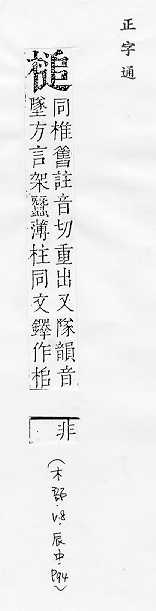 正字通
槌
同椎舊註音切重出又隊韻音
墜方言架蠶薄柱同文鐸作柏
非
(木部 V.8 辰中 P94)